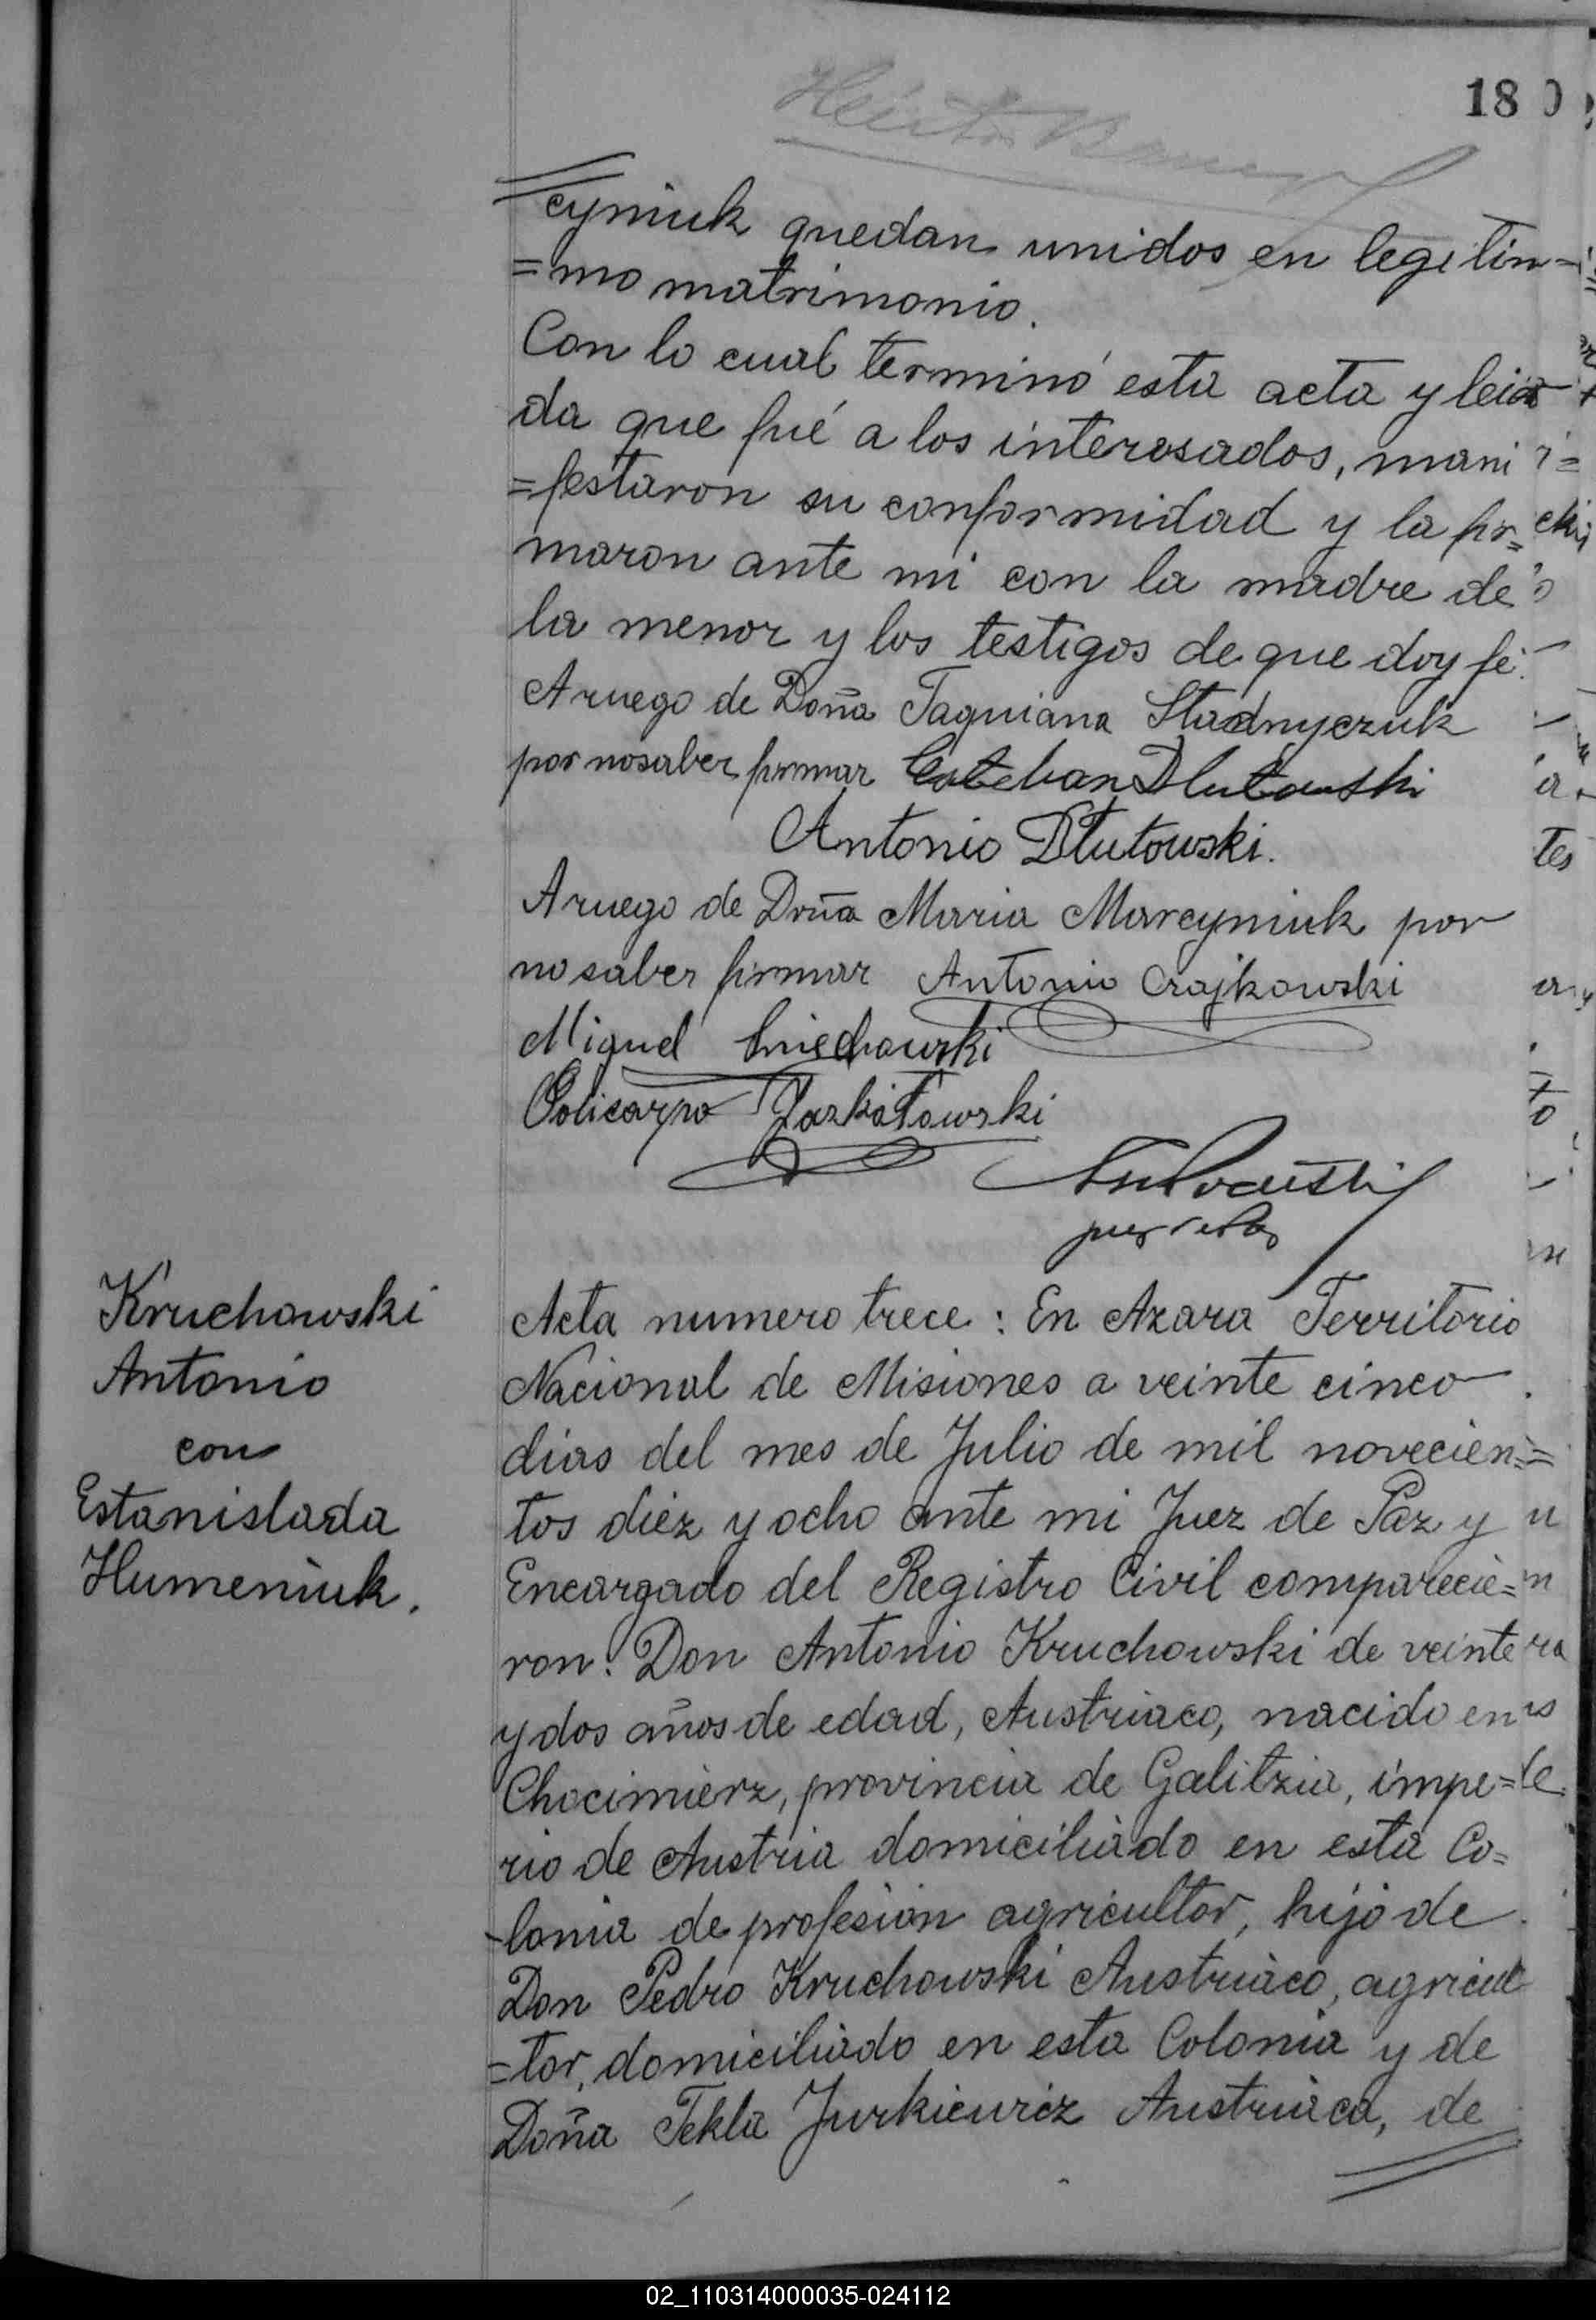 18
cyniuk quedan unidos en legitim=
=mo matrimonio.
Con lo cual terminó esta acta y lei
da que fué a los interesados, mani
=festaron su conformidad y la fir=
maron ante mi con la madre de
la menor y los testigos de que doy fé.
A ruego de Doña Taquiana Stadnyczuk
por no saber firmar Esteban Dlutowski
Antonio Dlutowski.
A ruego de Doña Maria Marcyniuk por
no saber firmar Antonio Czajkowski
Miguel Sniechowski
Policarpo
juez de Paz
Kruchowski
Antonio
con
Estanislada
Humeniuk.
Acta numero trece: En Azara Territorio
Nacional de Misiones a veinte cinco
dias del mes de Julio de mil novecien=
tos diéz y ocho ante mi Juez de Paz y
Encargado del Registro Civil comparecie=
ron: Don Antonio Kruchowski de veinte
y dos años de edad, Austriaco, nacido en
Chocimierz, provincia de Galitzia, impe=
rio de Austria domiciliado en esta Co=
-lonia de profesion agricultor, hijo de
Don Pedro Kruchowski Austriaco, agricul
=tor, domiciliado en esta Colonia y de
Doña Tekla Jurkiewicz Austriaca, de
02_110314000035-024112